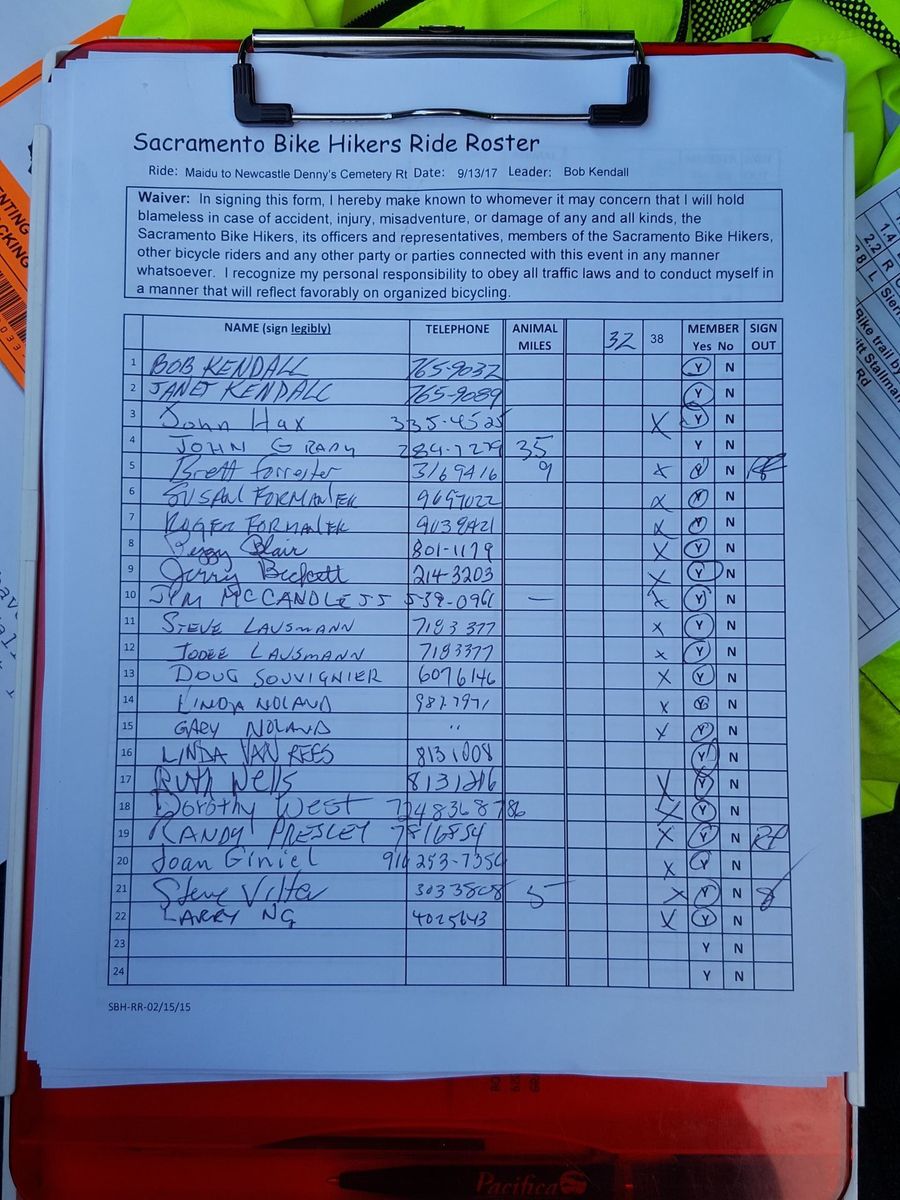 Sacramento Bike Hikers Ride Roster
Ride: Maidu to Newcastle Denny's Cemetery Rt Date: 9/13/17 Leader: Bob Kendall
Waiver: In signing this form, I hereby make known to whomever it may concern that I will hold
blameless in case of accident, injury, misadventure, or damage of any and all kinds, the
Sacramento Bike Hikers, its officers and representatives, members of the Sacramento Bike Hikers,
other bicycle riders and any other party or parties connected with this event in any manner
whatsoever. I recognize my personal responsibility to obey all traffic laws and to conduct myself in
a manner that will reflect favorably on organized bicycling.
NAME (sign legibly) TELEPHONE ANIMAL MILES 32 38 MEMBER Yes No SIGN OUT
1 BOB KENDALL 765-9032 Y N
2 JANET KENDALL 765-9089 Y N
3 John Hax 335-4525 X Y N
4 JOHN GRADY 284-7279 35 Y N
5 Brett Forrester 3169416 9 X Y N
6 SUSAN FORMANEK 9697022 X Y N
7 ROGER FORMANEK X Y N
8 Peggy Blair 801-1179 X Y N
9 Jerry Beckett 214-3203 X Y N
10 JIM MCCANDLESS 539-0961 — X Y N
11 STEVE LAUSMANN 7183377 X Y N
12 JODEE LAUSMANN 7183377 X Y N
13 DOUG SOUVIGNIER 6076146 X Y N
14 LINDA NOLAND X Y N
15 GARY NOLAND " X Y N
16 LINDA VAN REES 8131008 Y N
17 RUTH Wells 8131216 X Y N
18 Dorothy West 7248368786 X Y N
19 RANDY PRESLEY 7816854 X Y N RP
20 Joan Giniel 916 253-7354 X Y N
21 Steve Vilter 3033808 5 X Y N
22 LARRY NG 4025643 X Y N
23 Y N
24 Y N
SBH-RR-02/15/15
Pacifica